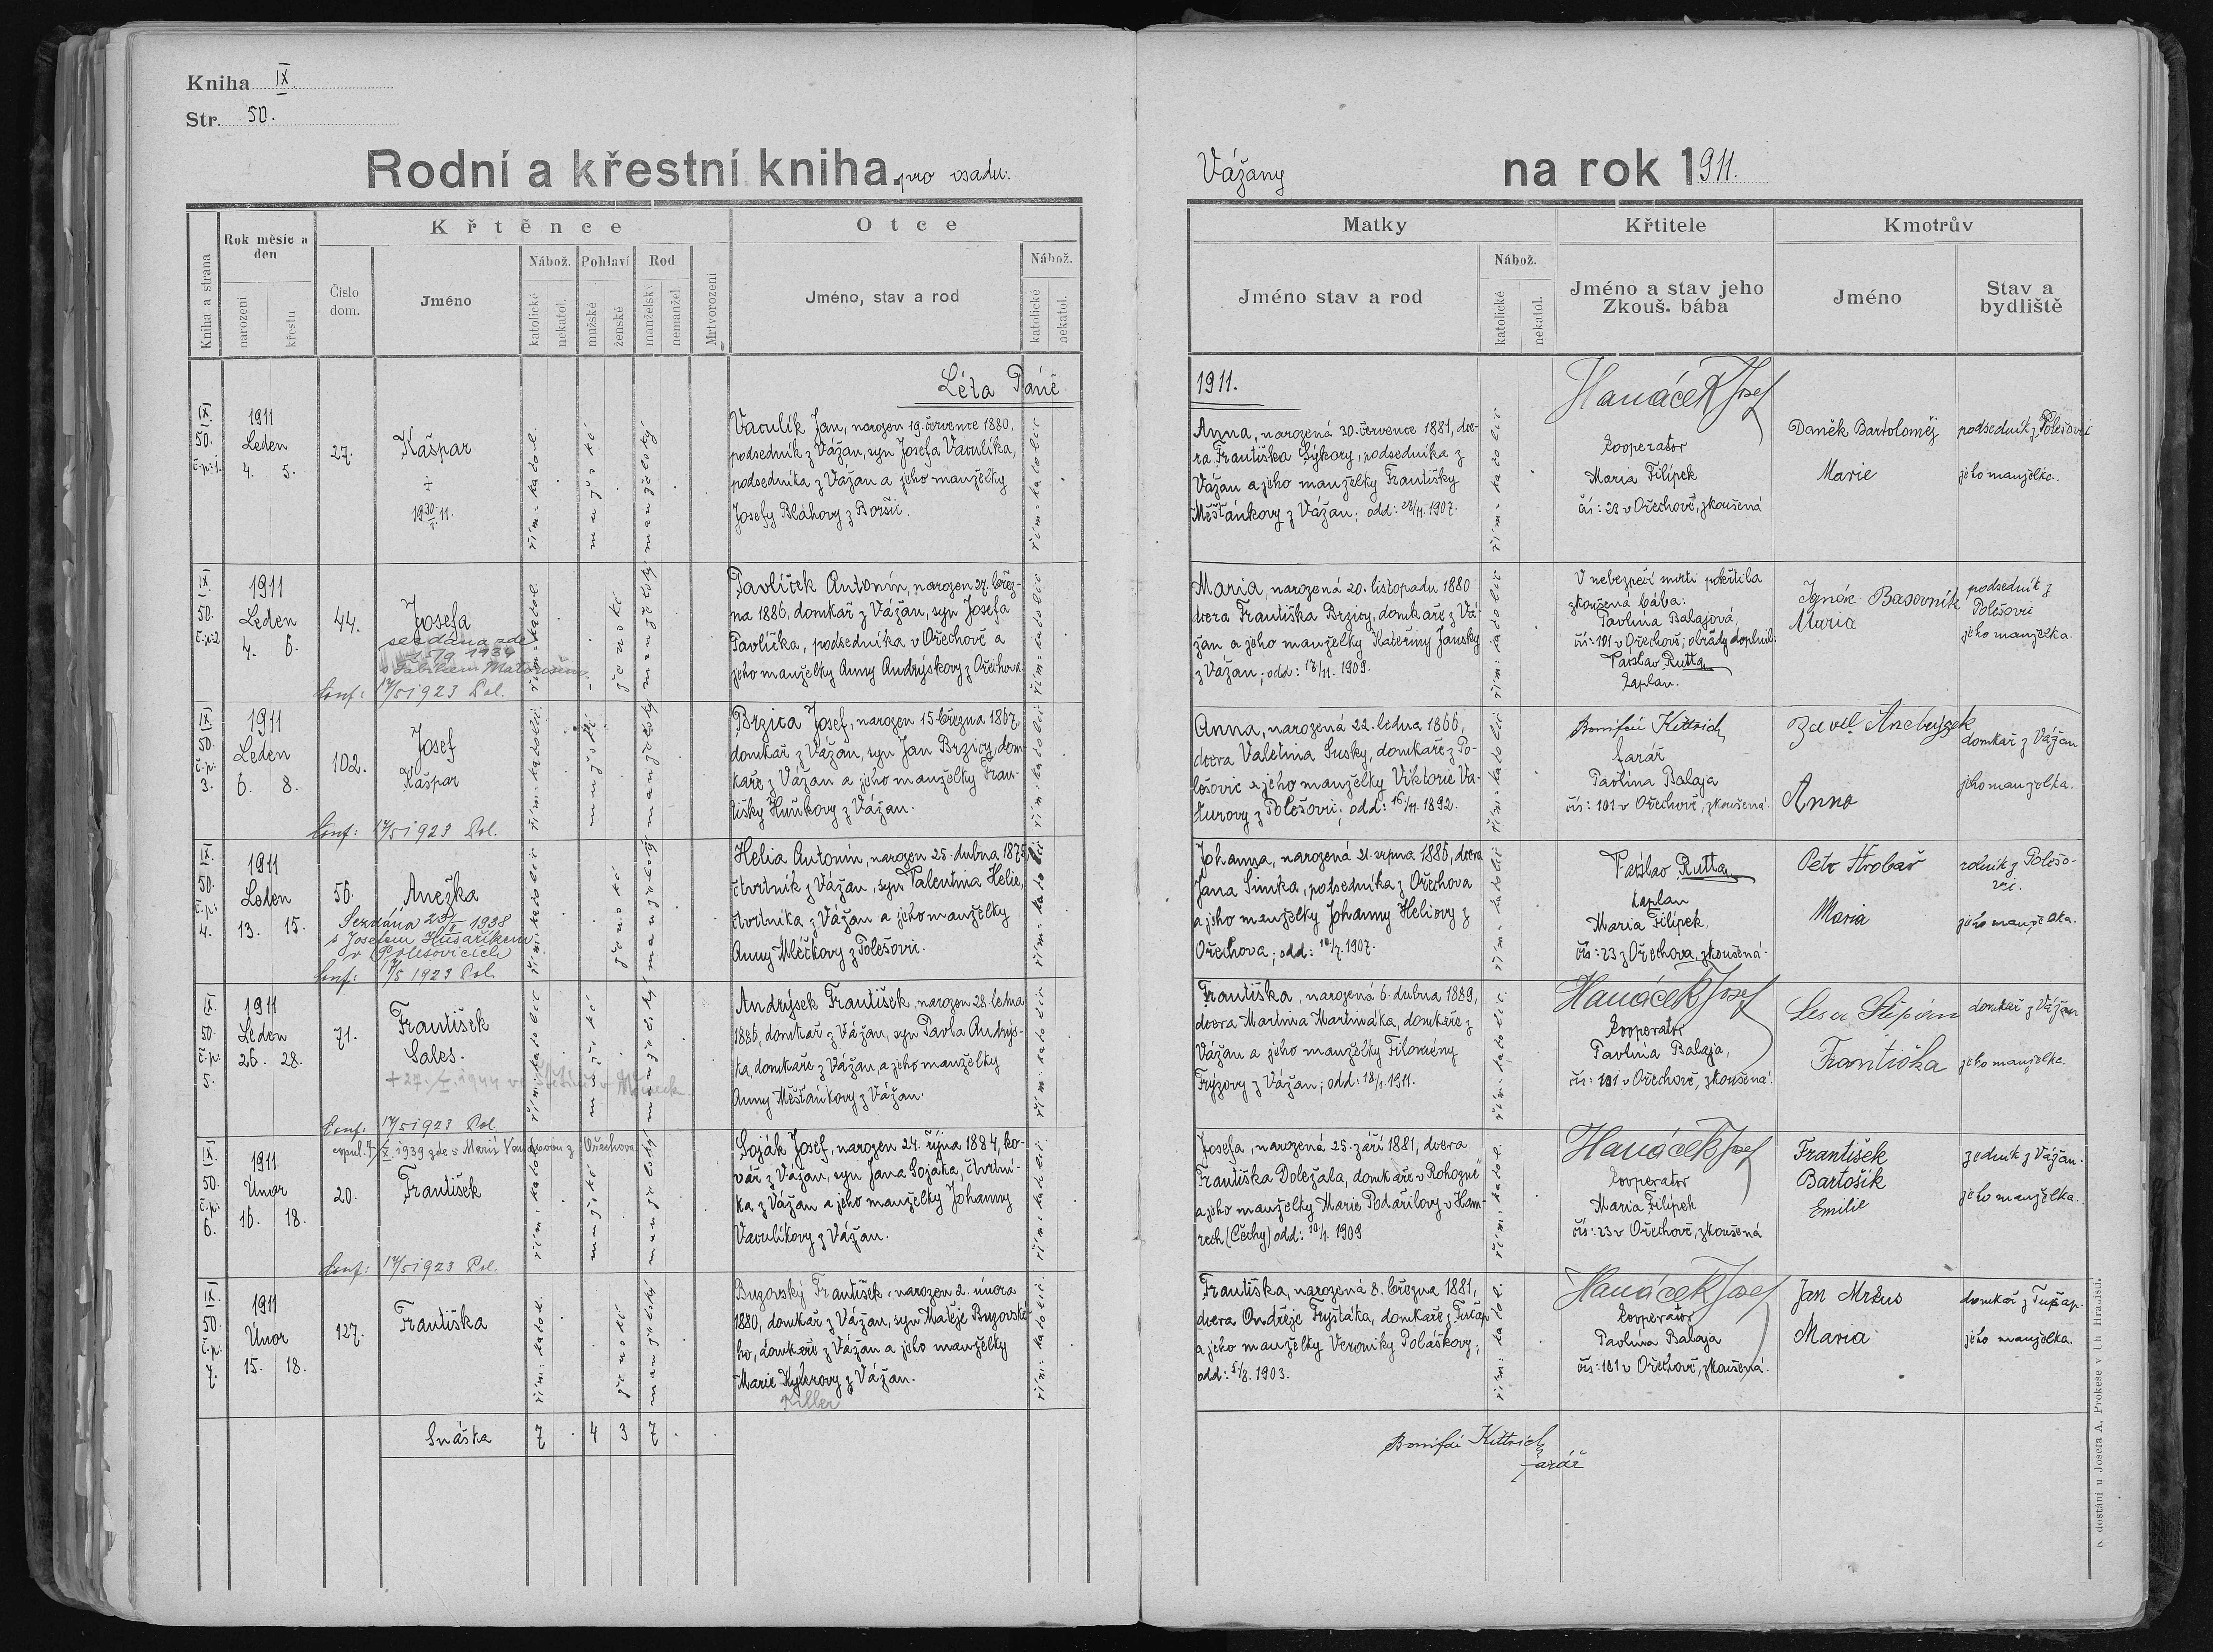 Kniha IX.
Str. 50.
Rodní a křestní kniha. pro osadu:
Vážany na rok 1911.
Kniha a strana
Rok měsíc a den
narození
křestu
Číslo dom.
Křtěnce
Jméno
Nábož.
katolické
nekatol.
Pohlaví
mužské
ženské
Rod
manželský
nemanžel.
Mrtvorození
Otce
Jméno, stav a rod
Nábož.
katolické
nekatol.
Matky
Jméno stav a rod
Nábož.
katolické
nekatol.
Křtitele
Jméno a stav jeho
Zkouš. bába
Kmotrův
Jméno
Stav a
bydliště
Léta Páně
1911.
IX.
50.
č.p.: 1.
1911
Leden
4. 5.
27.
Kašpar
÷
19 30/1. 11.
řím. katol.
mužské
manželský
Vaculík Jan, narozen 19. července 1880,
podsedník z Vážan, syn Josefa Vaculíka,
podsedníka z Vážan a jeho manželky
Josefy Bláhovy z Boršic.
řím. katolic
Anna, narozená 30. července 1881, dce-
ra Františka Sýkory, podsedníka z
Vážan a jeho manželky Františky
Měšťánkovy z Vážan; odd: 26/11. 1907.
řím. katolic
Hanáček Josef
Cooperator
Maria Filípek
čís: 23 v Ořechově, zkoušená
Daněk Bartoloměj
Marie
podsedník z Polešovic
jeho manželka.
IX.
50.
č.p.: 2
1911
Leden
4. 6.
44.
Josefa
sezdána zde
15/9 1934
s Fabiánem Matoušem
Conf: 17/5 1923 Pol.
řím. katol.
ženské
manželský
Pavlíček Antonín, narozen 27. břez-
na 1886, domkař z Vážan, syn Josefa
Pavlíčka, podsedníka v Ořechově a
jeho manželky Anny Andrýskovy z Ořechova.
řím. katolic
Maria, narozená 20. listopadu 1880
dcera Františka Brzicy, domkaře z Vá-
žan a jeho manželky Kateřiny Janský
z Vážan; odd: 17/11. 1909.
řím. katolic
V nebezpečí smrti pokřtila
zkoušená bába:
Pavlína Balajová,
čís: 101 v Ořechově; obřady doplnil:
Vatslav Rutta
kaplan.
Ignác Basovník
Maria
podsedník z
Polešovic
jeho manželka.
IX.
50.
č.p.
3.
1911
Leden
6. 8.
102.
Josef
Kašpar
Conf: 17/5 1923 Pol.
řím. katolic
mužské
manželský
Brzica Josef, narozen 15. března 1867,
domkař z Vážan, syn Jan Brzicy, dom-
kaře z Vážan a jeho manželky Fran-
tišky Huňkovy z Vážan.
řím. katolic
Anna, narozená 22. ledna 1866,
dcera Valetina Susky, domkaře z Po-
lešovic a jeho manželky Viktorie Va-
turovy z Polešovic; odd: 16/11. 1892.
řím. katolic
Bonifác Kittrich
farář
Pavlína Balaja
čís: 101 v Ořechově, zkoušená.
Pavel
Anna
domkař z Vážan
jeho manželka.
IX.
50.
č.p.
4.
1911
Leden
13. 15.
56.
Anežka
Sezdána 1938
s Josefem Husaříkem
v Polešovicích
Conf: 17/5 1923 Pol
řím. katolic
ženské
manželský
Helia Antonín, narozen 25. dubna 1875
čtvrtník z Vážan, syn Valentina Helie,
čtvrtníka z Vážan a jeho manželky
Anny Mléčkovy z Polešovic.
řím. katolic
Johanna, narozená 21. srpna 1885, dcera
Jana Simka, podsedníka z Ořechova
a jeho manželky Johanny Heliovy z
Ořechova; odd: 10/7. 1907.
řím. katolic
Vatslav Rutta
kaplan
Maria Filípek
čís: 23 z Ořechova, zkoušená.
Petr Hrobař
Maria
rolník z Polešo-
vic.
jeho manželka.
IX.
50.
č.p.
5.
1911
Leden
26. 28.
71.
František
Sales.
Conf. 17/5 1923 Pol.
řím. katolic
mužské
manželský
Andrýsek František, narozen 28. ledna
1886, domkař z Vážan, syn Pavla Andrýs-
ka, domkaře z Vážan, a jeho manželky
Anny Měšťánkovy z Vážan.
řím. katolic
Františka, narozená 6. dubna 1889,
dcera Martina Martináka, domkaře z
Vážan a jeho manželky Filomény
Frýzovy z Vážan; odd: 18/1. 1911.
řím. katolic
Hanáček Josef
Cooperator
Pavlína Balaja,
čís: 101 v Ořechově, zkoušená.
Štěpán
Františka
domkař z Vážan
jeho manželka.
IX.
50.
č.p.
6.
1911
Únor
16. 18.
20.
1939 zde s Marií z Ořechova
František
Conf: 17/5 1923 Pol.
řím. katol.
mužské
manželský
Soják Josef, narozen 24. října 1884, ko-
vář z Vážan, syn Jana Sojáka, čtvrtní-
ka z Vážan a jeho manželky Johanny
Vaculíkovy z Vážan.
řím. katolic
Josefa, narozená 25. září 1881, dcera
Františka Doležala, domkaře v Rohozné
a jeho manželky Marie Podařilovy v Ham-
rech (Čechy) odd: 10/1. 1909
řím. katol.
Hanáček Josef
Cooperator
Maria Filípek
čís: 23 v Ořechově, zkoušená
František
Bartošík
Emilie
zedník z Vážan.
jeho manželka.
IX.
50.
č.p.
7.
1911
Únor
15. 18.
127.
Františka
řím. katol.
ženské
manželský
Buzovský František, narozen 2. února
1880, domkař z Vážan, syn Matěje Buzovské-
ho, domkaře z Vážan a jeho manželky
Marie Kylerovy z Vážan.
Killer
řím. katolic
Františka, narozená 8. března 1881,
dcera Ondřeje Fryštáka, domkaře z Tučap
a jeho manželky Veroniky Poláškovy;
odd: 5/8. 1903.
řím. katol.
Hanáček Josef
Cooperator
Pavlína Balaja
čís: 101 v Ořechově, zkoušená.
Jan Mrkus
Maria
domkař z Tučap.
jeho manželka.
Snáška 7 . 4 3 7 . .
Bonifác Kittrich
farář
K dostání u Josefa A. Prokese v Uh. Hradišti.